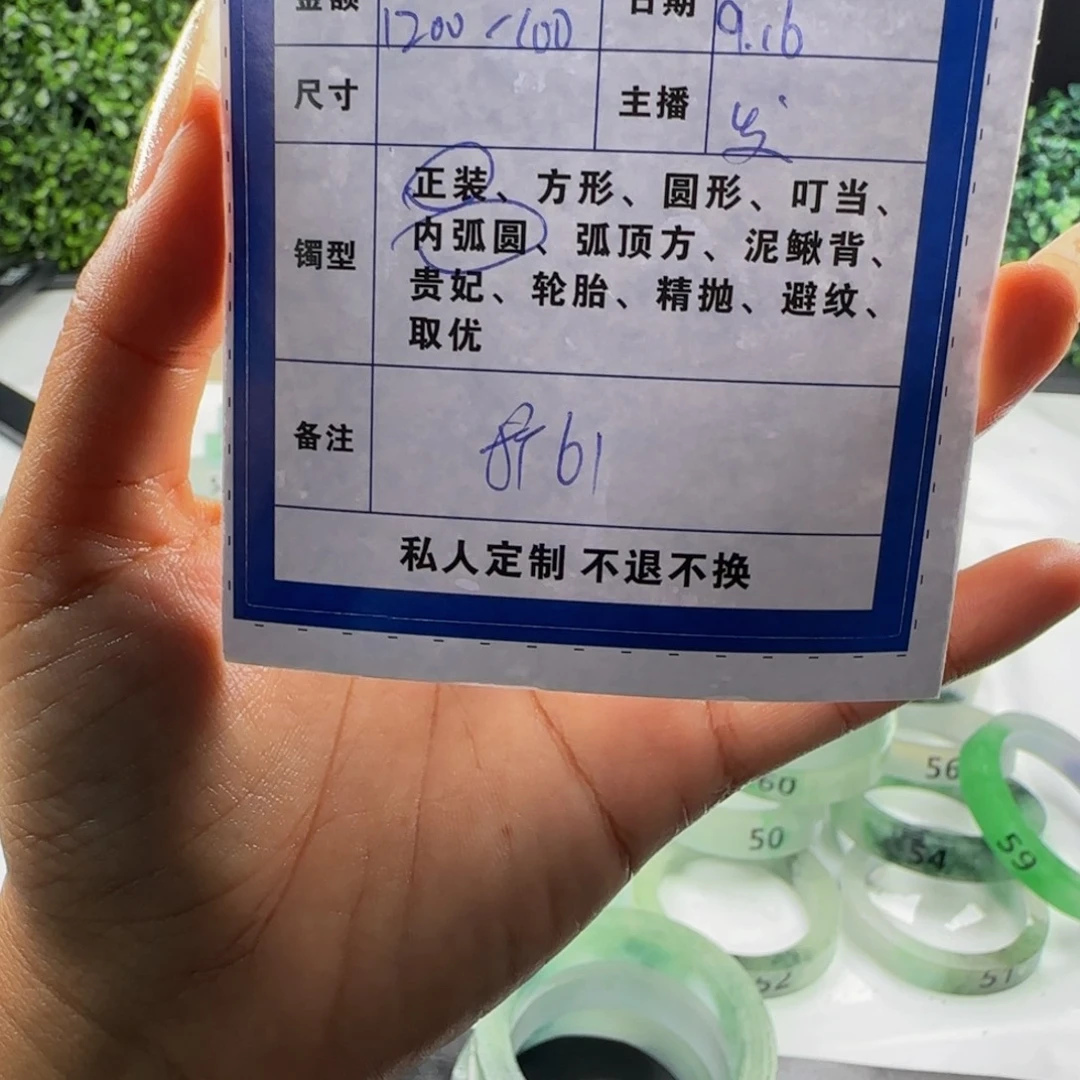 金额 1200-100 日期 9.16
尺寸 主播
镯型 正装、方形、圆形、叮当、
内弧圆、弧顶方、泥鳅背、
贵妃、轮胎、精抛、避纹、
取优
备注 61
私人定制 不退不换
60
56
50
54
59
52
51